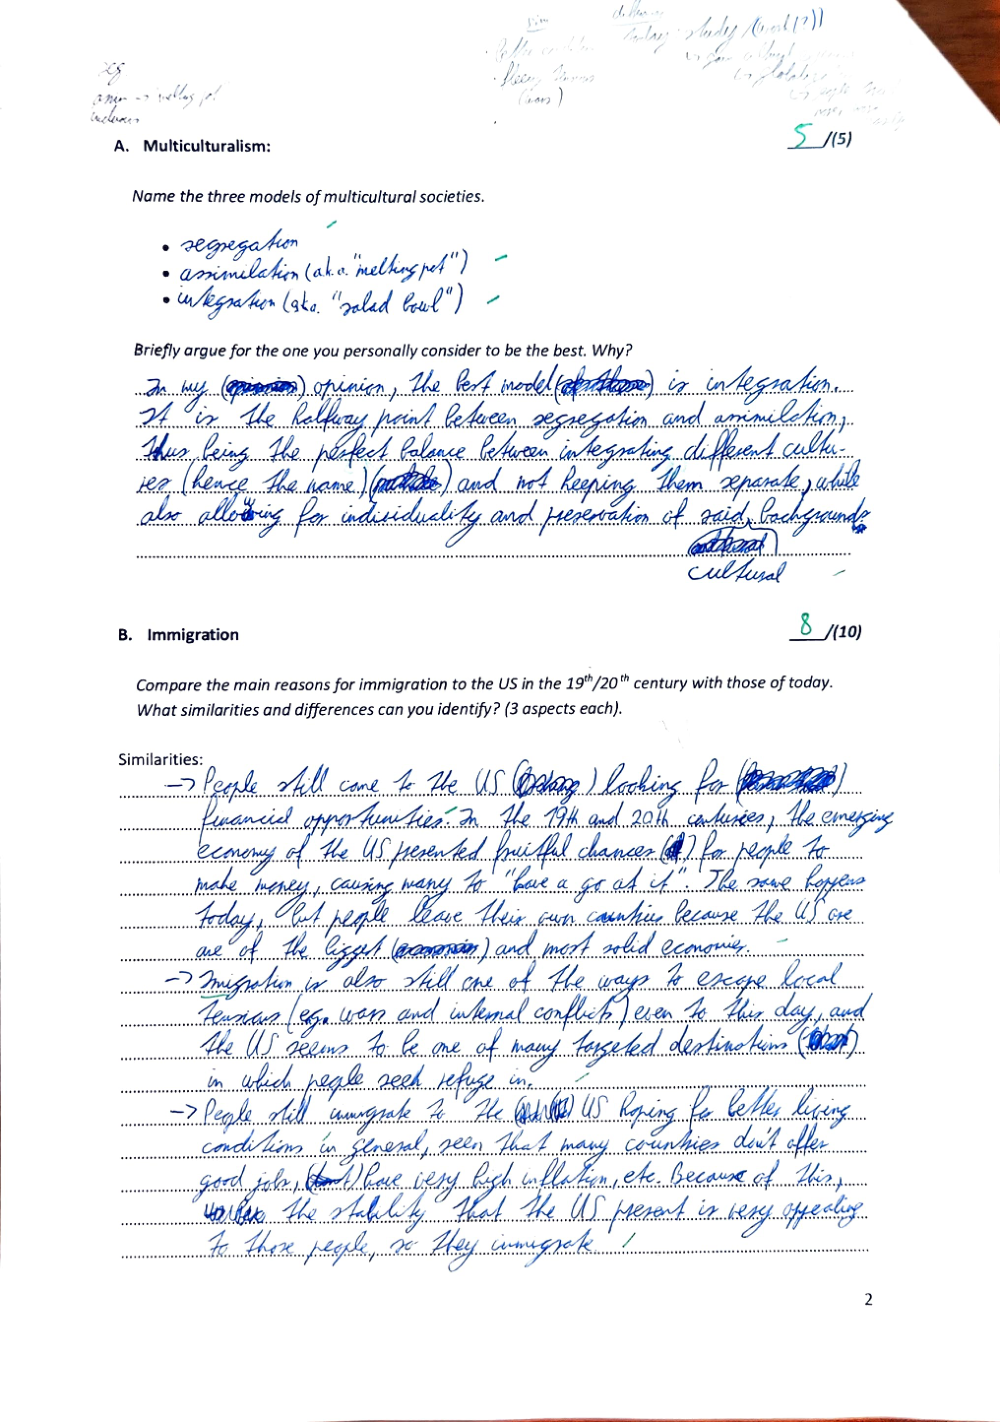 sim
differences
today: study
eg.
melting pot
A. Multiculturalism:
5 /(5)
Name the three models of multicultural societies.
• segregation
• assimilation (a.k.a. "melting pot")
• integration (aka. "salad bowl")
Briefly argue for the one you personally consider to be the best. Why?
In my opinion, the best model is integration.
It is the halfway point between segregation and assimilation,
thus being the perfect balance between integrating different cultu-
res (hence the name) and not keeping them separate, while
also allowing for individuality and preservation of said backgrounds.
cultural
B. Immigration
8 /(10)
Compare the main reasons for immigration to the US in the 19th/20th century with those of today.
What similarities and differences can you identify? (3 aspects each).
Similarities:
-> People still come to the US looking for
financial opportunities. In the 19th and 20th centuries, the emerging
economy of the US presented fruitful chances for people to
make money, causing many to "have a go at it". The same happens
today, but people leave their own countries because the US are
one of the biggest and most solid economies.
-> Imigration is also still one of the ways to escape local
tensions (eg. wars and internal conflicts) even to this day, and
the US seems to be one of many targeted destinations
in which people seek refuge in.
-> People still immigrate to the US hoping for better living
conditions in general, seen that many countries don't offer
good jobs, have very high inflation, etc. Because of this,
the stability that the US present is very appealing
to those people, so they immigrate
2